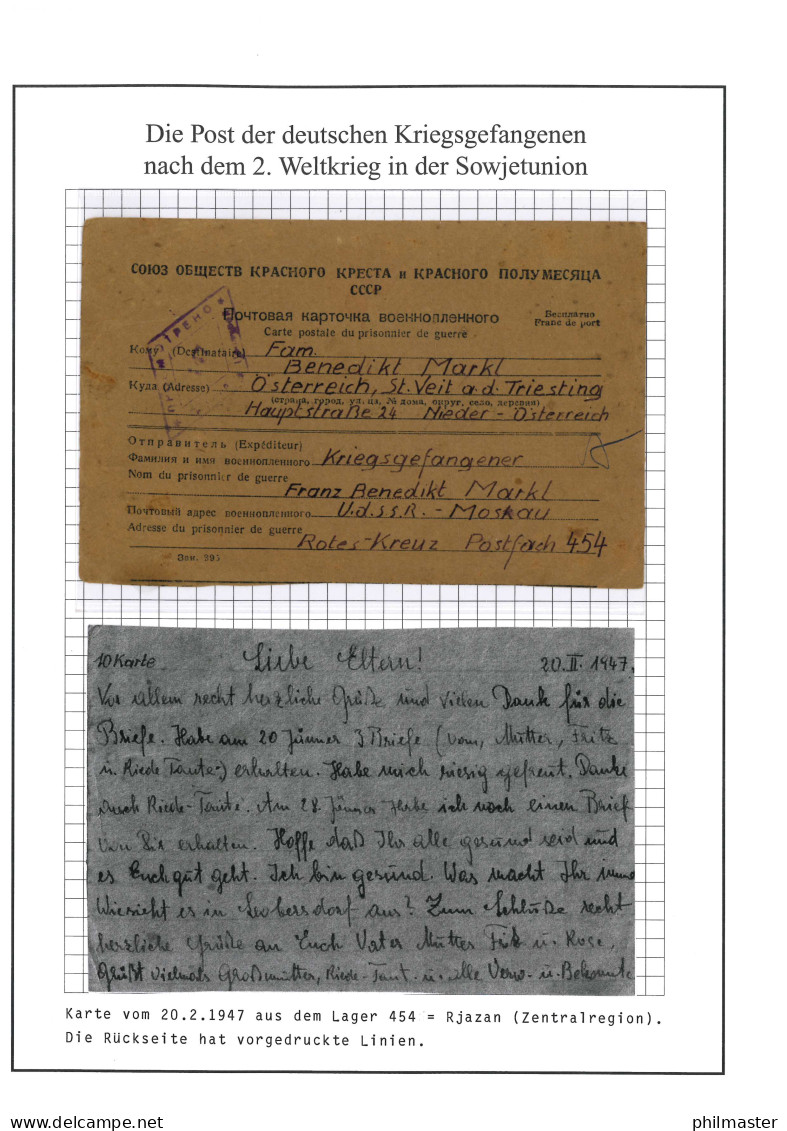 Die Post der deutschen Kriegsgefangenen
nach dem 2. Weltkrieg in der Sowjetunion
СОЮЗ ОБЩЕСТВ КРАСНОГО КРЕСТА и КРАСНОГО ПОЛУМЕСЯЦА
СССР
Почтовая карточка военнопленного
Бесплатно
Franc de port
Carte postale du prisonnier de guerre
Кому (Destinataire) Fam.
Benedikt Markl
Куда (Adresse) Österreich, St. Veit a.d. Triesting
(страна, город, улица, № дома, округ, село, деревня)
Hauptstraße 24 Nieder-Österreich
Отправитель (Expéditeur)
Фамилия и имя военнопленного Kriegsgefangener
Nom du prisonnier de guerre
Franz Benedikt Markl
Почтовый адрес военнопленного U.d.S.S.R. - Moskau
Adresse du prisonnier de guerre
Rotes-Kreuz Postfach 454
Зак. 395
10 Karte Liebe Eltern! 20.II.1947.
Vor allem recht herzliche Grüße und vielen Dank für die
Briefe. Habe am 20 Jänner 3 Briefe (vom, Mutter, Fritz
u. Riede Tante) erhalten. Habe mich riesig gefreut. Danke
auch Riede-Tante. Am 28. Jänner habe ich noch einen Brief
von erhalten. Hoffe daß Ihr alle gesund seid und
es Euch gut geht. Ich bin gesund. Was macht Ihr immer
Wie sieht es in Leobersdorf aus? Zum Schluße recht
herzliche Grüße an Euch Vater Mutter Fritz u. Rose,
Grüßt vielmals Großmutter, Riede-Tant. u. alle Verw. u. Bekannte
Karte vom 20.2.1947 aus dem Lager 454 = Rjazan (Zentralregion).
Die Rückseite hat vorgedruckte Linien.
www.delcampe.net
philmaster